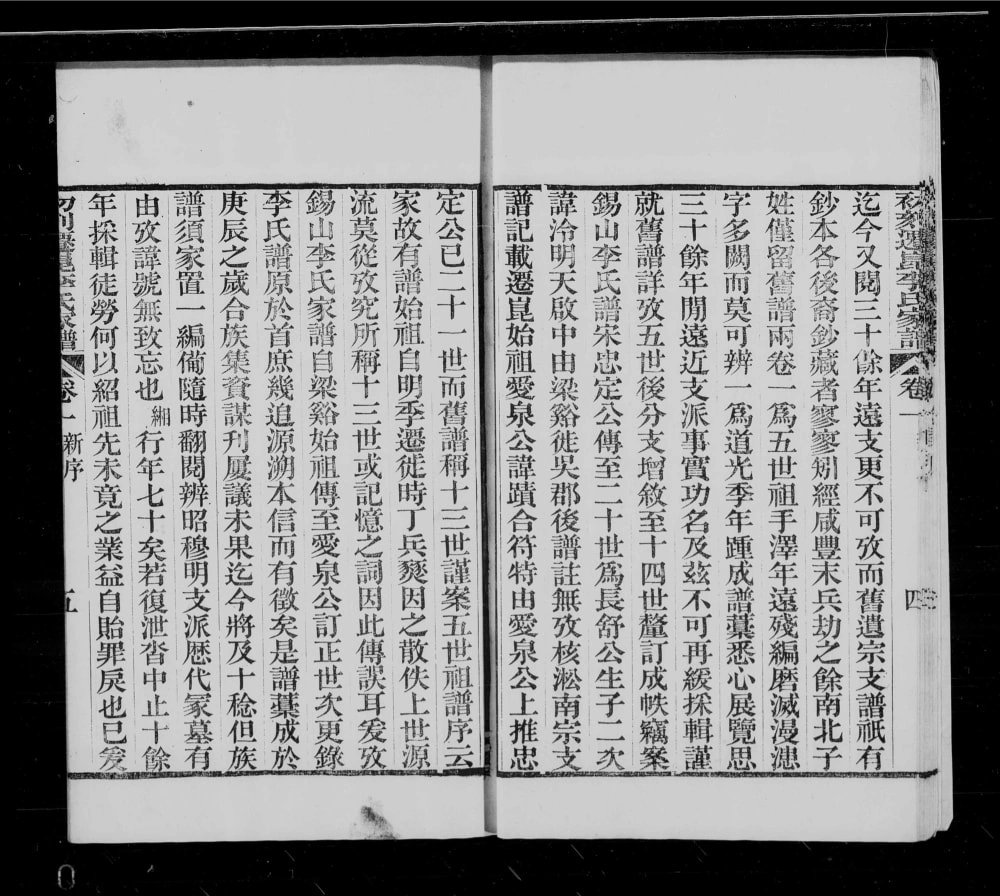 初刻遷崑李氏家譜 卷一 四
迄今又閱三十餘年遠支更不可攷而舊遺宗支譜祇有
鈔本各後裔鈔藏者寥寥矧經咸豐末兵劫之餘南北子
姓僅留舊譜兩卷一爲五世祖手澤年遠殘編磨滅漫漶
字多闕而莫可辨一爲道光季年踵成譜藁悉心展覽思
三十餘年閒遠近支派事實功名及茲不可再緩採輯謹
就舊譜詳攷五世後分支增敘至十四世釐訂成帙竊案
錫山李氏譜宋忠定公傳至二十世爲長舒公生子二次
諱泠明天啟中由梁谿徙吳郡後譜註無攷核淞南宗支
譜記載遷崑始祖愛泉公諱蹟合符特由愛泉公上推忠
定公已二十一世而舊譜稱十三世謹案五世祖譜序云
家故有譜始祖自明季遷徙時丁兵燹因之散佚上世源
流莫從攷究所稱十三世或記憶之詞因此傳誤耳爰攷
錫山李氏家譜自梁谿始祖傳至愛泉公訂正世次更錄
李氏譜原於首庶幾追源溯本信而有徵矣是譜藁成於
庚辰之歲合族集資謀刊屢議未果迄今將及十稔但族
譜須家置一編備隨時翻閱辨昭穆明支派歷代冢墓有
由攷諱號無致忘也緗行年七十矣若復泄沓中止十餘
年採輯徒勞何以紹祖先未竟之業益自貽罪戾也已爰
初刻遷崑李氏家譜 卷一 新序 五